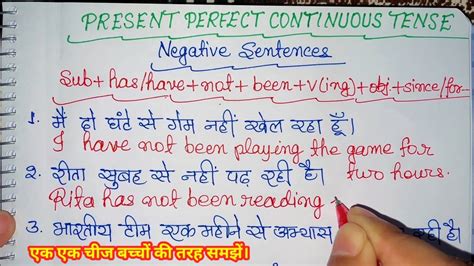 PRESENT PERFECT CONTINUOUS TENSE
Negative Sentences
Sub+has/have+not+been+v(ing)+obj+since/for--
1. मैं दो घंटे से गेम नहीं खेल रहा हूँ।
I have not been playing the game for
two hours.
2. रीता सुबह से नहीं पढ़ रही है।
Rita has not been reading
3. भारतीय टीम एक महीने से अभ्यास रही है।
एक एक चीज बच्चों की तरह समझें।